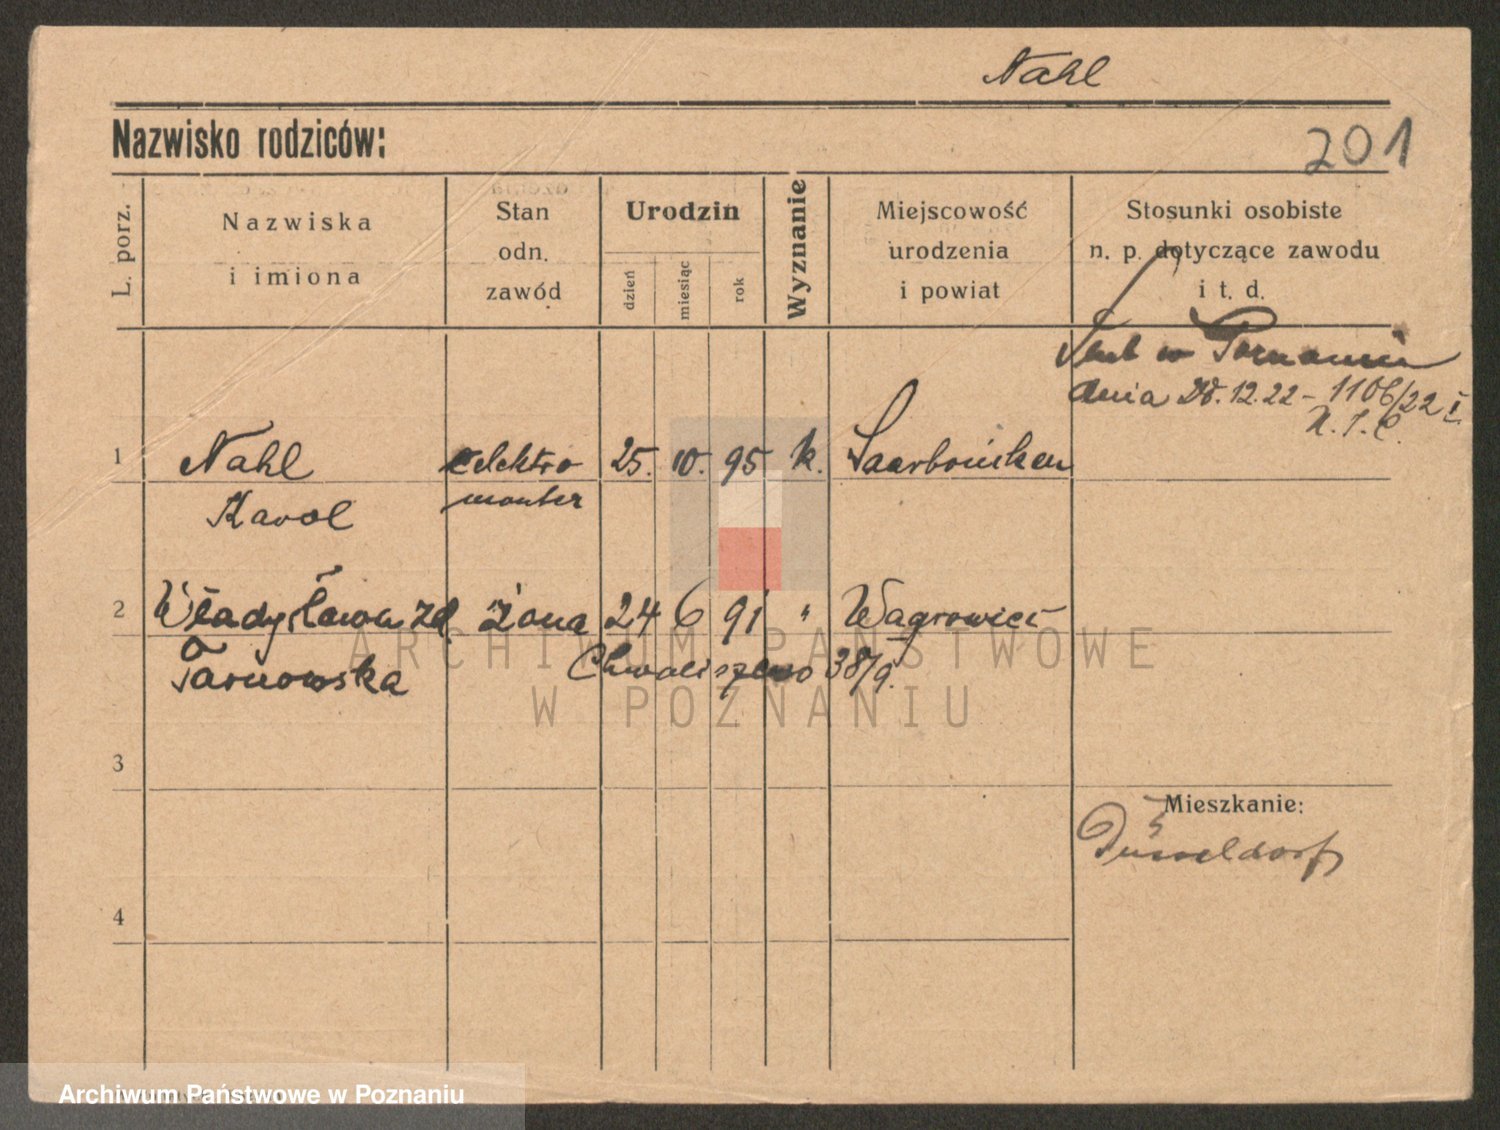 Nahl
Nazwisko rodziców:
201
L. porz.
Nazwiska
i imiona
Stan
odn.
zawód
Urodzin
dzień
miesiąc
rok
Wyznanie
Miejscowość
urodzenia
i powiat
Stosunki osobiste
n. p. dotyczące zawodu
i t. d.
Ślub w Poznaniu
dnia 12.22 - 1106/22
1 Nahl elektro 25. 10. 95 k. Saarbrücken
Karol monter
2 Władysława zd. żona 24 6 91 " Wągrowiec
Tarnowska Chwaliszewo 38/9.
ARCHIWUM PAŃSTWOWE
W POZNANIU
3
Mieszkanie:
Düsseldorf
4
Archiwum Państwowe w Poznaniu